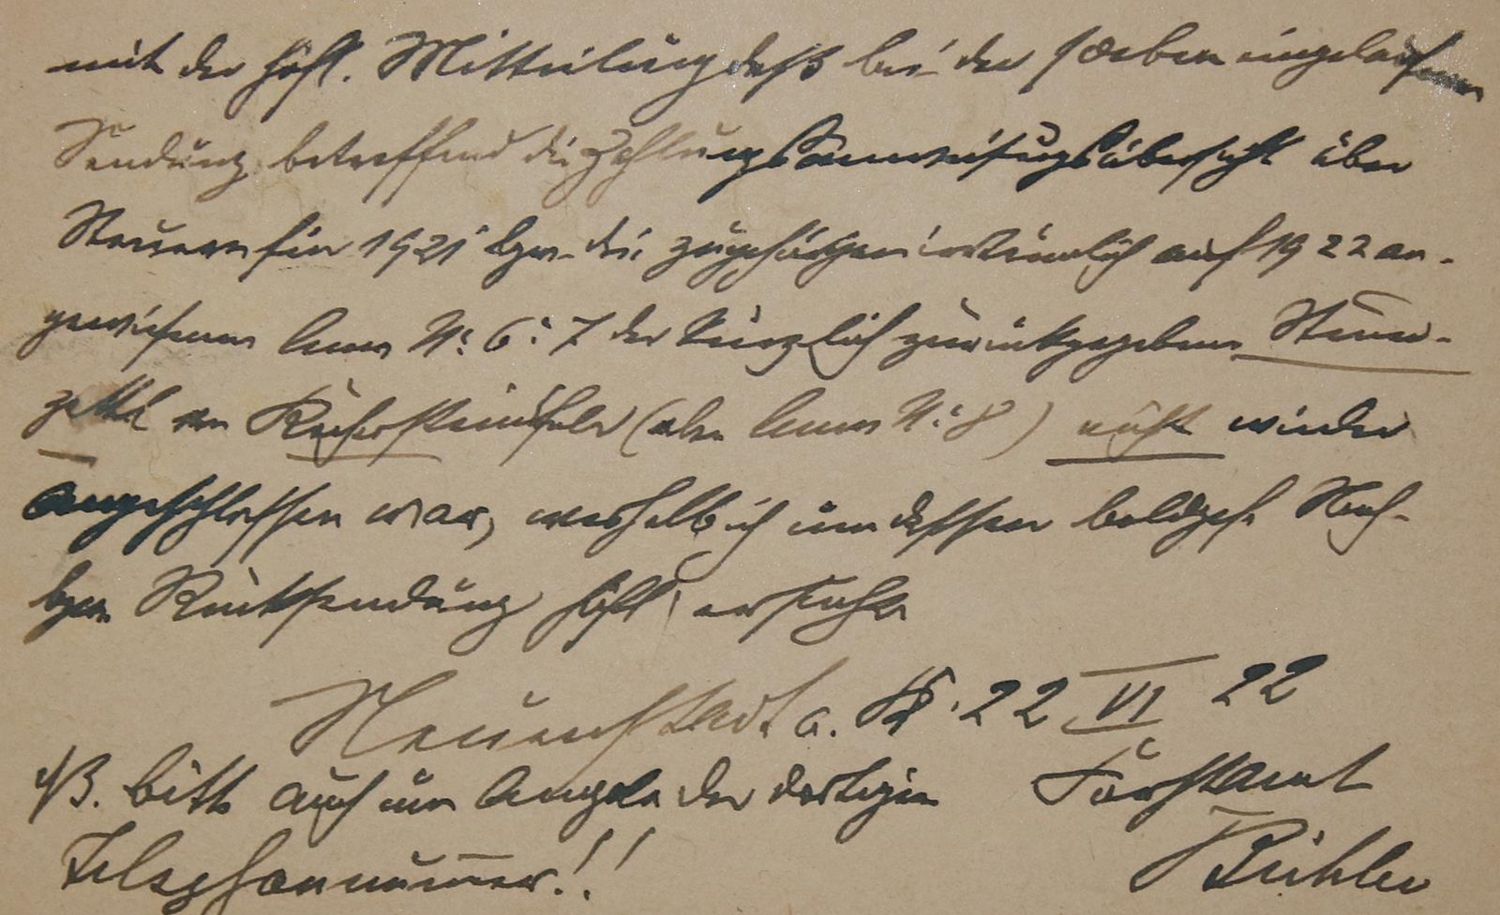 mit der höfl. Mitteilung daß bei der soeben eingelaufenen
Sendung betreffend die Zahlungsanweisungsübersicht über
Steuern für 1921 bzw. die zugehörigen irrtümlich auf 1922 an-
gewiesenen N: 6 : 7 der kürzlich zurückgegebenen Steuer-
zettel von (aber N: 8) nicht wieder
angeschlossen war, weshalb ich um dessen baldgef. Nach-
bzw. Rücksendung höfl. ersuche
Neuenstadt a. K. 22 VI 22
N/B. bitte auch um Angabe der dortigen Forstamt
Telephonnummer!! Bühler